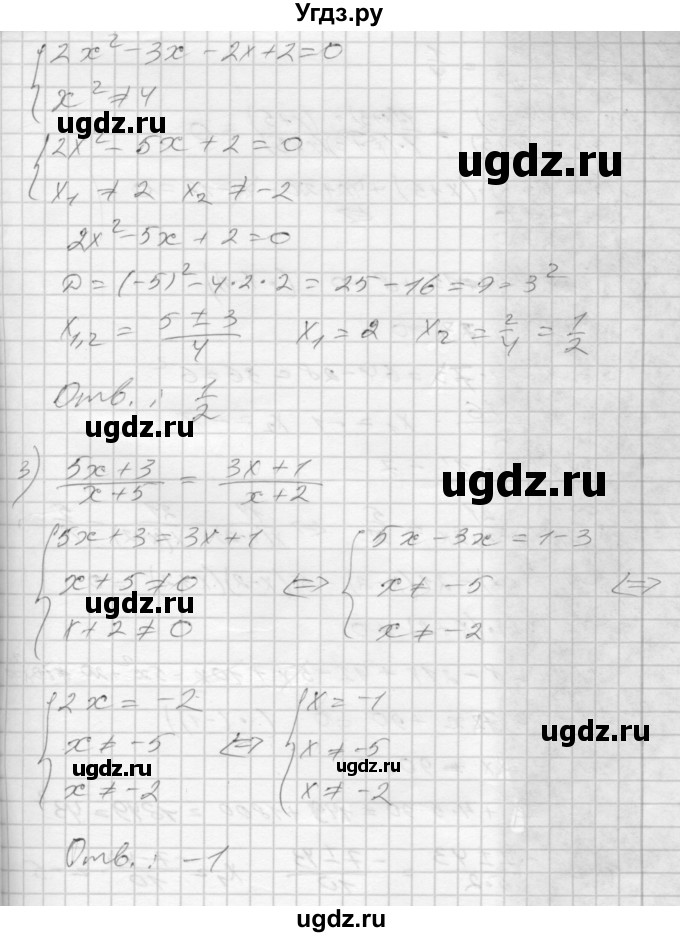 Угдз.ру
2x² - 3x - 2x + 2 = 0
x² ≠ 4
ugdz.ru
ugdz.ru
2x² - 5x + 2 = 0
x₁ ≠ 2 x₂ ≠ -2
2x² - 5x + 2 = 0
D = (-5)² - 4·2·2 = 25 - 16 = 9 = 3²
x₁,₂ = (5 ± 3)/4 x₁ = 2 x₂ = 2/4 = 1/2
Отв.: 1/2
ugdz.ru
3) (5x + 3)/(x + 5) = (3x + 1)/(x + 2)
ugdz.ru
5x + 3 = 3x + 1 5x - 3x = 1 - 3
x + 5 ≠ 0 ⇔ x ≠ -5 ⇔
ugdz.ru
x + 2 ≠ 0 x ≠ -2
2x = -2 x = -1
ugdz.ru
x ≠ -5 ⇔ x ≠ -5
ugdz.ru ugdz.ru
x ≠ -2 x ≠ -2
Отв.: -1
ugdz.ru